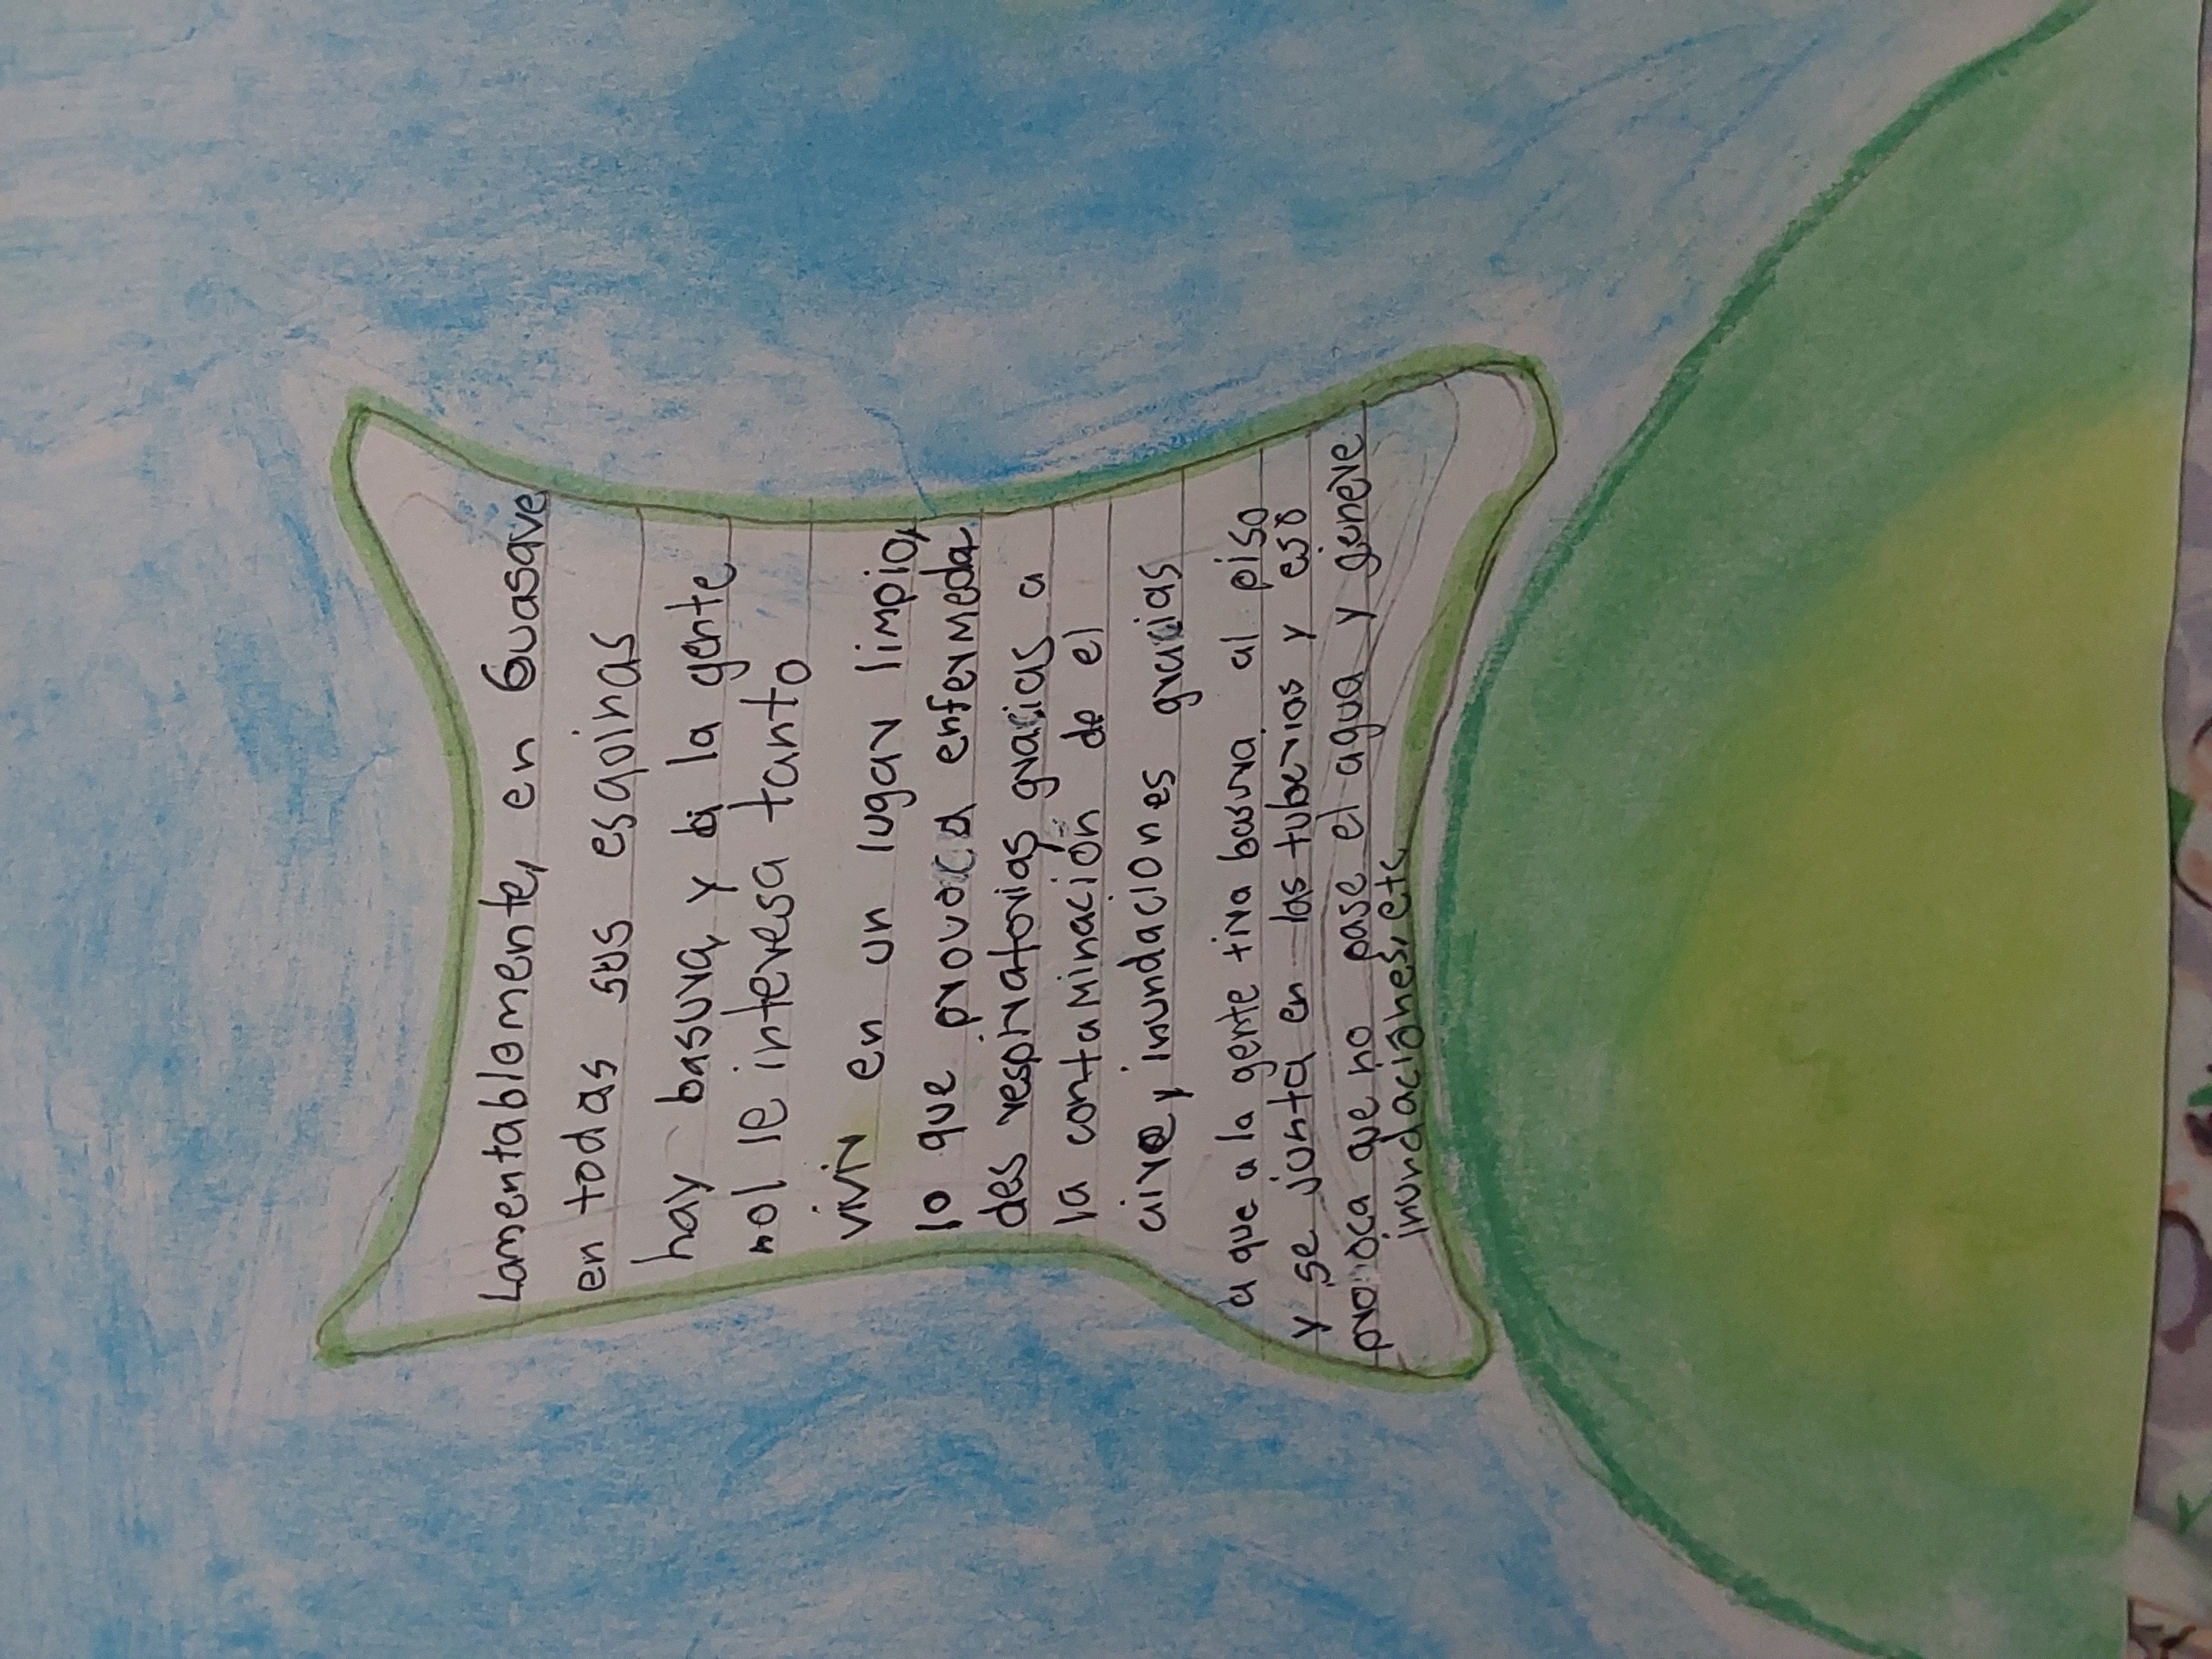 Lamentablemente, en Guasave
en todas sus esqoinas
hay basura, y a la gente
no le interesa tanto
vivir en un lugar limpio,
lo que provoca enfermeda
des respiratorias gracias a
la contaminación de el
aire, inundaciones gracias
a que a la gente tira basura al piso
y se junta en las tuberias y eso
provoca que no pase el agua y genere
inundaciones, etc.